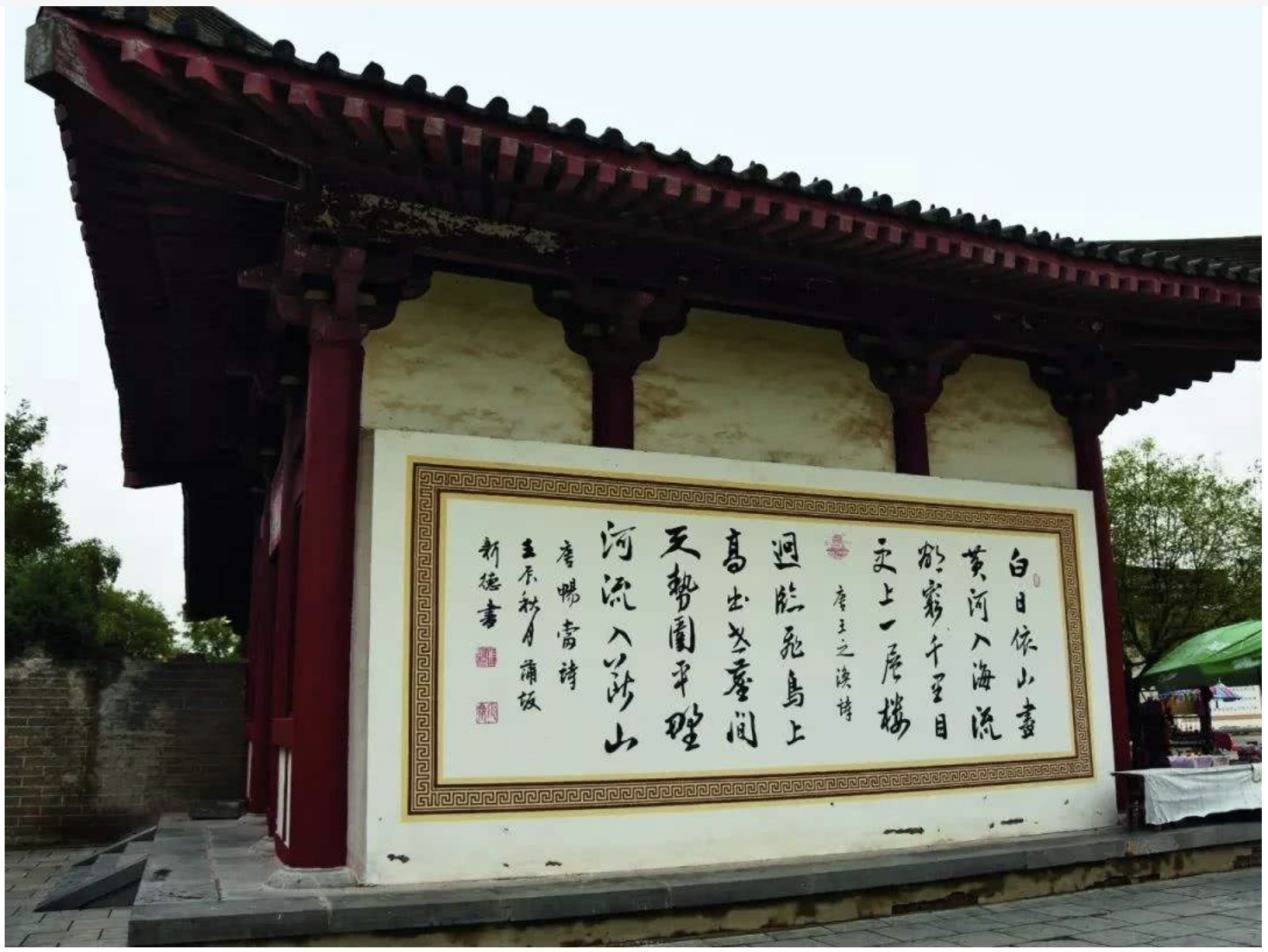 白日依山盡
黄河入海流
欲窮千里目
更上一层樓
唐王之渙詩
迥臨飛鳥上
高出世塵间
天勢圍平野
河流入斷山
唐暢當詩
壬辰秋月蒲坂
新德書